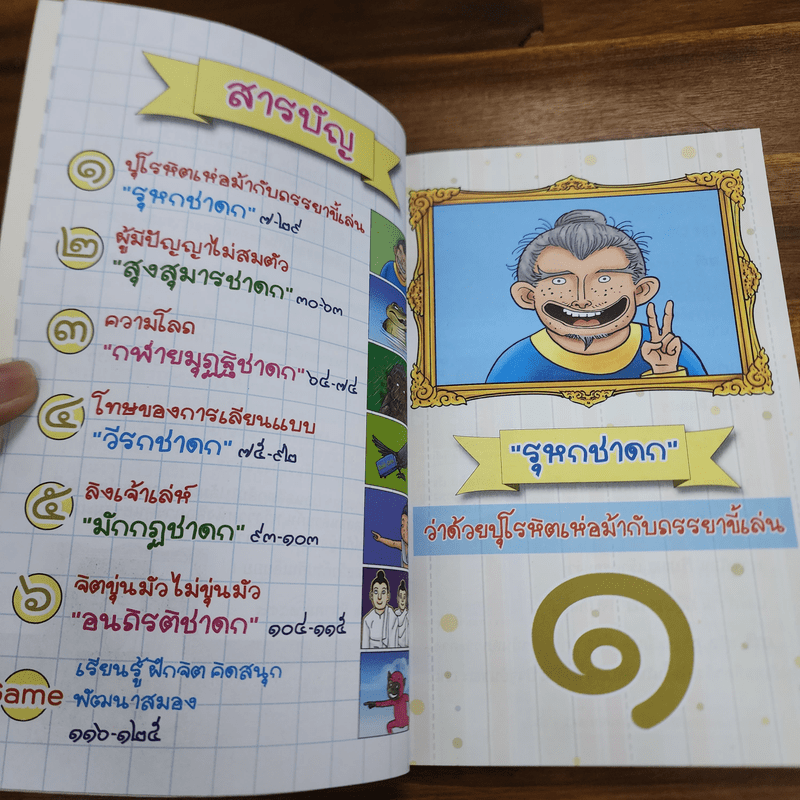 สารบัญ
๑ ปุโรหิตเห่อม้ากับภรรยาขี้เล่น
"รุหกชาดก" ๗-๒๙
๒ ผู้มีปัญญาไม่สมตัว
"สุงสุมารชาดก" ๓๐-๖๓
๓ ความโลภ
"กฬายมุฏฐิชาดก" ๖๔-๗๔
๔ โทษของการเลียนแบบ
"วีรกชาดก" ๗๕-๙๒
๕ ลิงเจ้าเล่ห์
"มักกฏชาดก" ๙๓-๑๐๓
๖ จิตขุ่นมัว ไม่ขุ่นมัว
"อนภิรติชาดก" ๑๐๔-๑๑๕
Game เรียนรู้ ฝึกจิต คิดสนุก
พัฒนาสมอง
๑๑๖-๑๒๕
"รุหกชาดก"
ว่าด้วยปุโรหิตเห่อม้ากับภรรยาขี้เล่น
๑